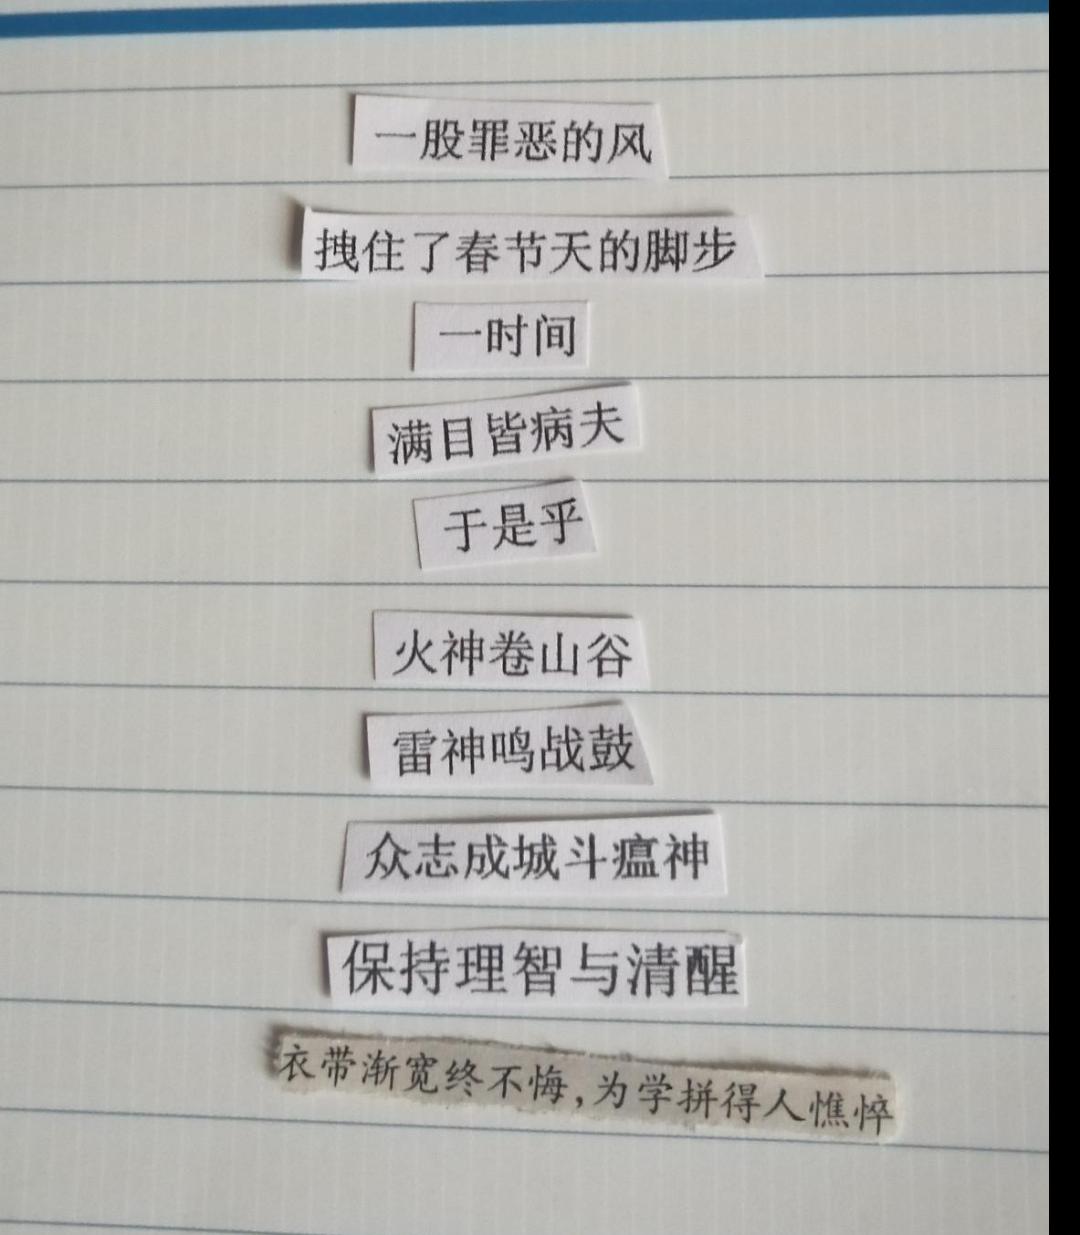 一股罪恶的风
拽住了春节天的脚步
一时间
满目皆病夫
于是乎
火神卷山谷
雷神鸣战鼓
众志成城斗瘟神
保持理智与清醒
衣带渐宽终不悔,为学拼得人憔悴